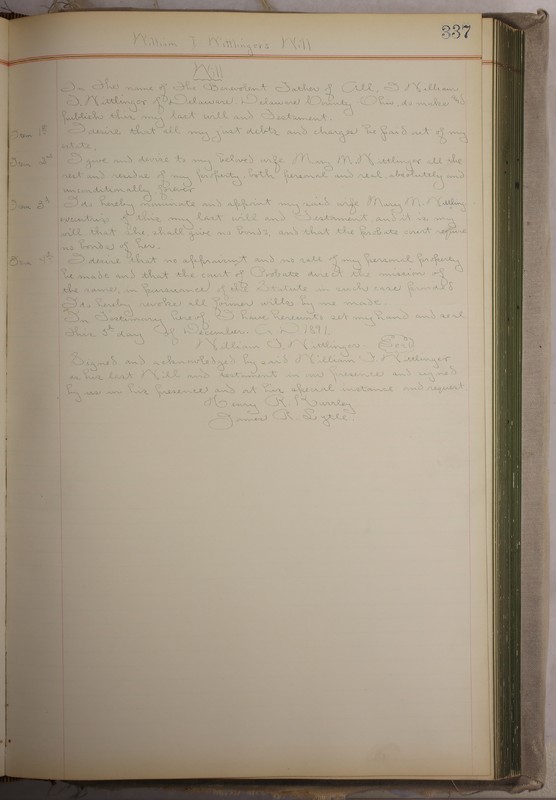 337
William T. Wittlinger's Will
Will
In the name of the Benevolent Father of All, I William
T. Wittlinger of Delaware Delaware County Ohio, do make and
publish this my last will and Testament.
Item 1st I desire that all my just debts and charges be paid out of my
estate.
Item 2nd I give and devise to my beloved wife Mary M. Wittlinger all the
rest and residue of my property both personal and real absolutely and
unconditionally forever
Item 3d I do hereby nominate and appoint my said wife Mary M. Wittling
executrix of this my last will and Testament, and it is my
will that she shall give no bonds, and that the probate court require
no bonds of her.
Item 4th I desire that no appraisment and no sale of my personal property
be made and that the court of Probate direct the omission of
the same, in pursuance of the Statute in such case provided
I do hereby revoke all former wills by me made.
In Testimony hereof I have hereunto set my hand and seal
this 5th day of December A.D. 1891.
William T. Wittlinger Seal
Signed and acknowledged by said William T. Wittlinger
as his last Will and testament in our presence and signed
by us in his presence and at his special instance and request
Henry R.
James R. Lytle.